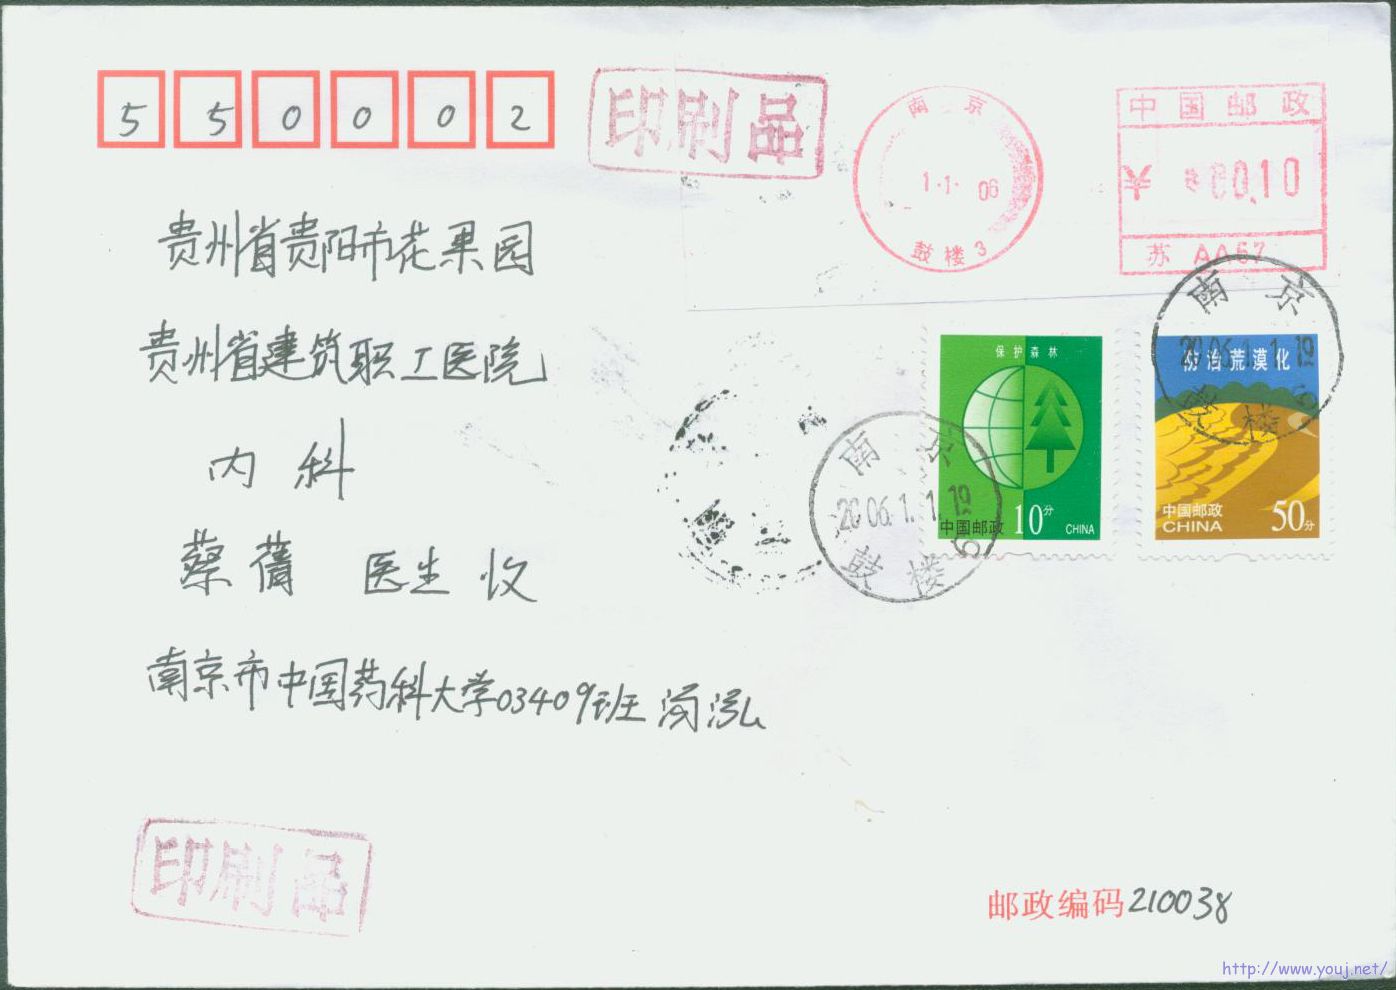 550002
印刷品
南京
1.1.06
鼓楼3
中国邮政
00.10
苏 AA67
贵州省贵阳市花果园
贵州省建筑职工医院
内科
蔡蒨 医生 收
南京市中国药科大学03409班
保护森林
中国邮政 10分 CHINA
南京
2006.1.1.19
鼓楼6
防治荒漠化
中国邮政
CHINA 50分
南京
2006.1.1.19
楼
印刷品
邮政编码210038
http://www.youj.net/